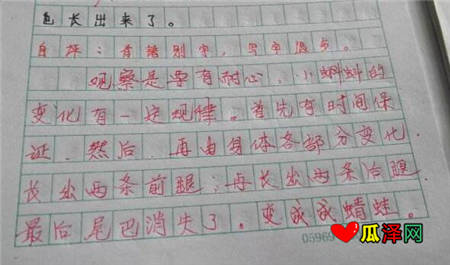 色长出来了。
自评:有错别字,写字退步。
观察是要有耐心,小蝌蚪的
变化有一定规律。首先有时间保
证,然后,再由身体各部分变化,
长出两条前腿;再长出两条后腿,
最后尾巴消失了,变成成蜻蛙。
05969
瓜泽网